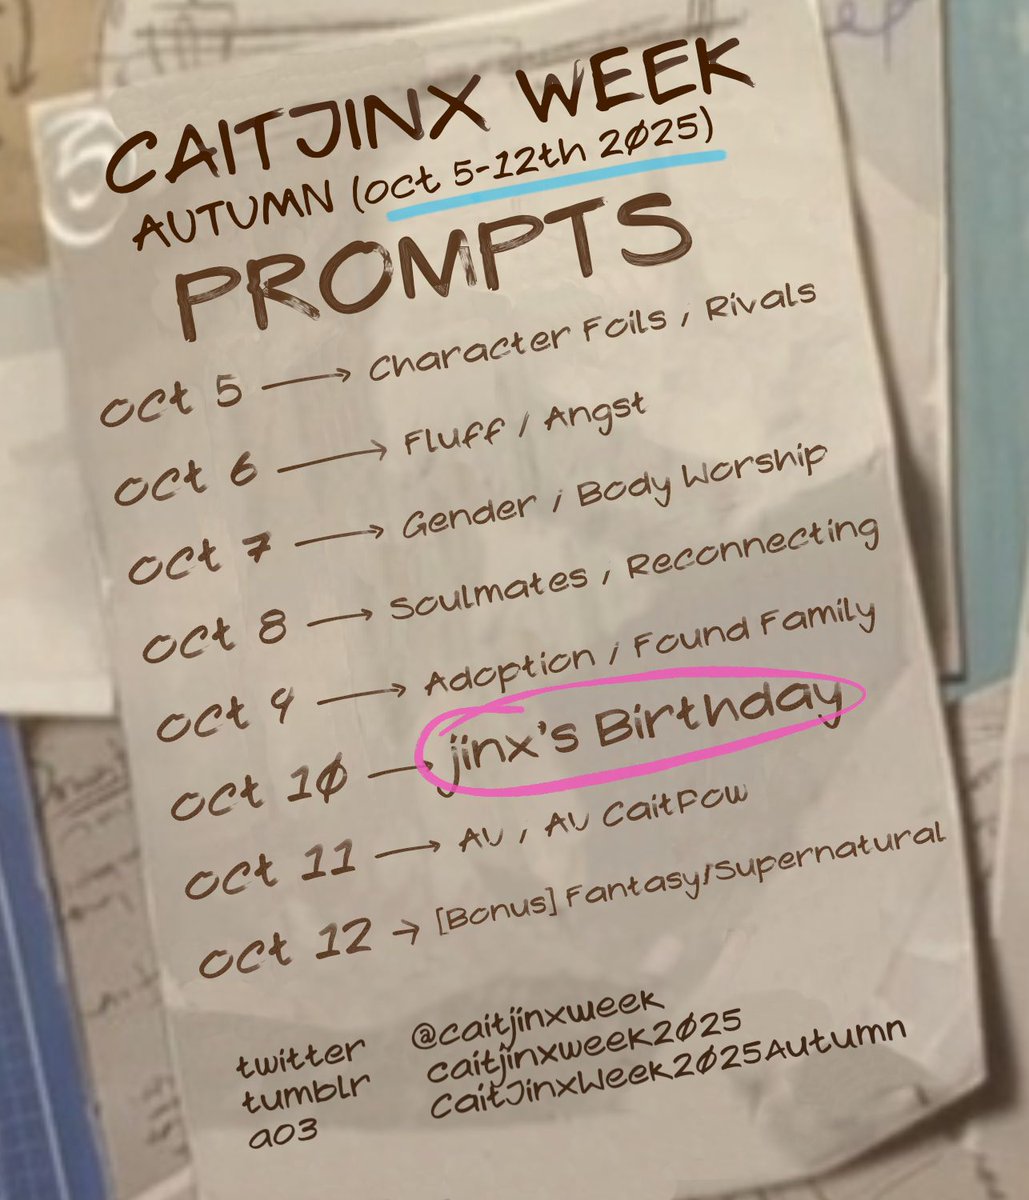 CAITJINX WEEK
AUTUMN (oct 5-12th 2025)
PROMPTS
oct 5 → Character Foils / Rivals
oct 6 → Fluff / Angst
oct 7 → Gender / Body Worship
oct 8 → Soulmates / Reconnecting
oct 9 → Adoption / Found Family
oct 10 → jinx's Birthday
oct 11 → AU / AU CaitPow
oct 12 → [Bonus] Fantasy/Supernatural
twitter @caitjinxweek
tumblr caitjinxweek2025
ao3 CaitJinxWeek2025Autumn